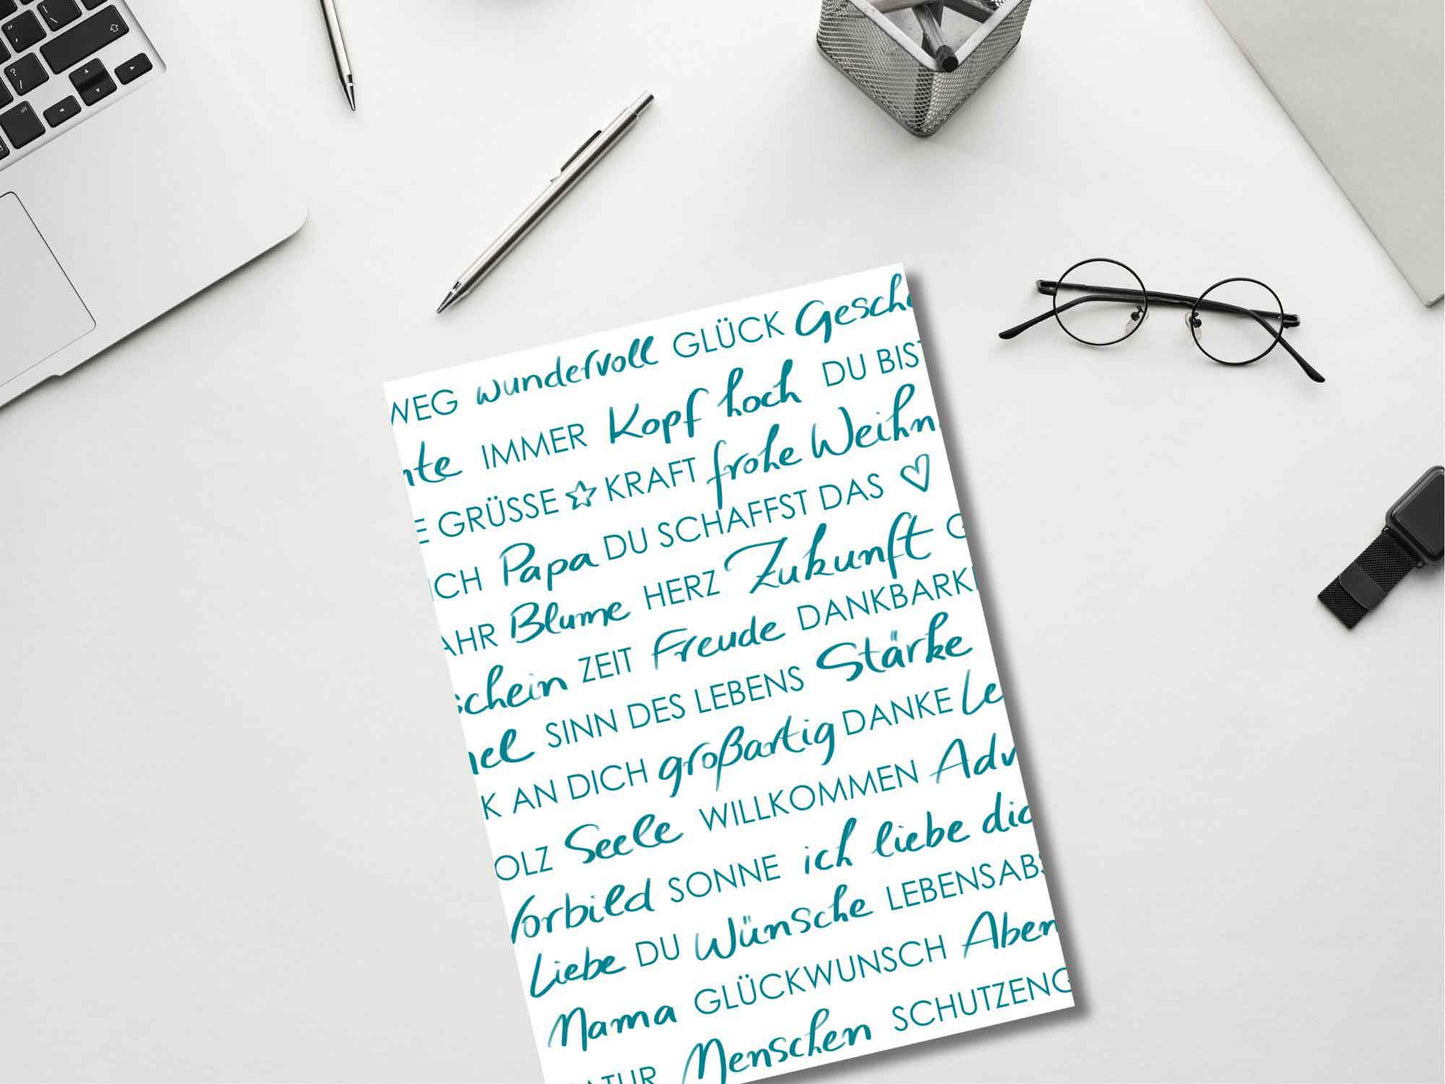 WEG wundervoll GLÜCK Gesche
nte IMMER Kopf hoch DU BIST
E GRÜSSE KRAFT frohe Weihn
ICH Papa DU SCHAFFST DAS
AHR Blume HERZ Zukunft G
schein ZEIT Freude DANKBARK
nel SINN DES LEBENS Stärke
K AN DICH großartig DANKE Le
OLZ Seele WILLKOMMEN Adv
Vorbild SONNE ich liebe dic
Liebe DU Wünsche LEBENSABS
Mama GLÜCKWUNSCH Aben
ATUR Menschen SCHUTZENG